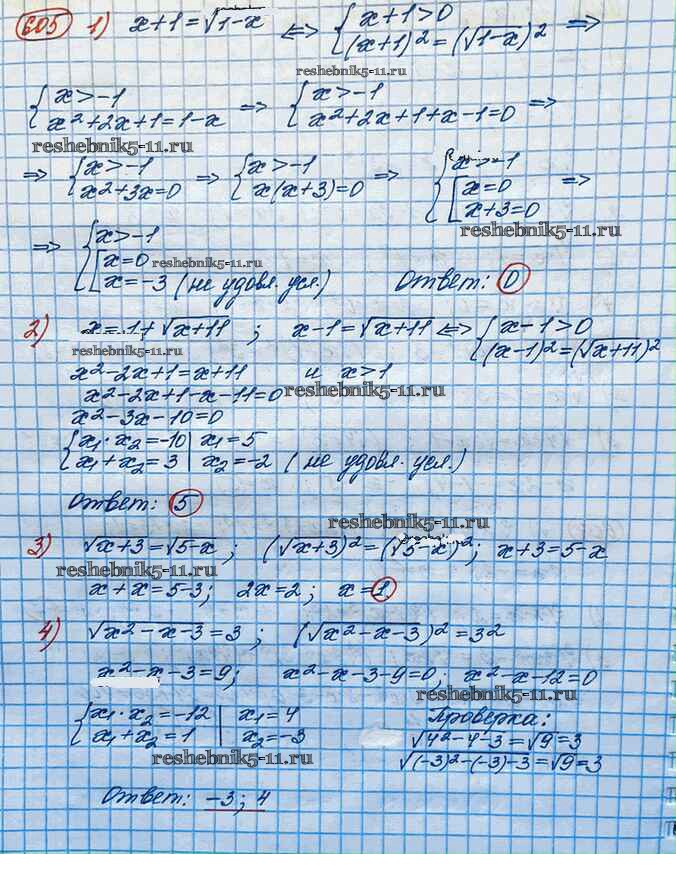 605 1) x+1=√1-x ⇔ { x+1>0 (x+1)²=(√1-x)² ⇒
reshebnik5-11.ru
{ x>-1 x²+2x+1=1-x ⇒ { x>-1 x²+2x+1+x-1=0 ⇒
reshebnik5-11.ru
⇒ { x>-1 x²+3x=0 ⇒ { x>-1 x(x+3)=0 ⇒ { x>-1 [ x=0 x+3=0 ⇒
reshebnik5-11.ru
⇒ { x>-1 [ x=0 x=-3 (не удовл. усл.) Ответ: 0
reshebnik5-11.ru
2) x=1+√x+11 ; x-1=√x+11 ⇔ { x-1>0 (x-1)²=(√x+11)²
x²-2x+1=x+11 и x>1
x²-2x+1-x-11=0
reshebnik5-11.ru
x²-3x-10=0
{ x₁·x₂=-10 | x₁=5
x₁+x₂=3 | x₂=-2 (не удовл. усл.)
Ответ: 5
reshebnik5-11.ru
3) √x+3=√5-x ; (√x+3)²=(√5-x)²; x+3=5-x
reshebnik5-11.ru
x+x=5-3; 2x=2; x=1
4) √x²-x-3=3 ; (√x²-x-3)²=3²
x²-x-3=9; x²-x-3-9=0; x²-x-12=0
reshebnik5-11.ru
{ x₁·x₂=-12 | x₁=4
x₁+x₂=1 | x₂=-3
reshebnik5-11.ru
Проверка:
√4²-4-3=√9=3
√(-3)²-(-3)-3=√9=3
Ответ: -3; 4